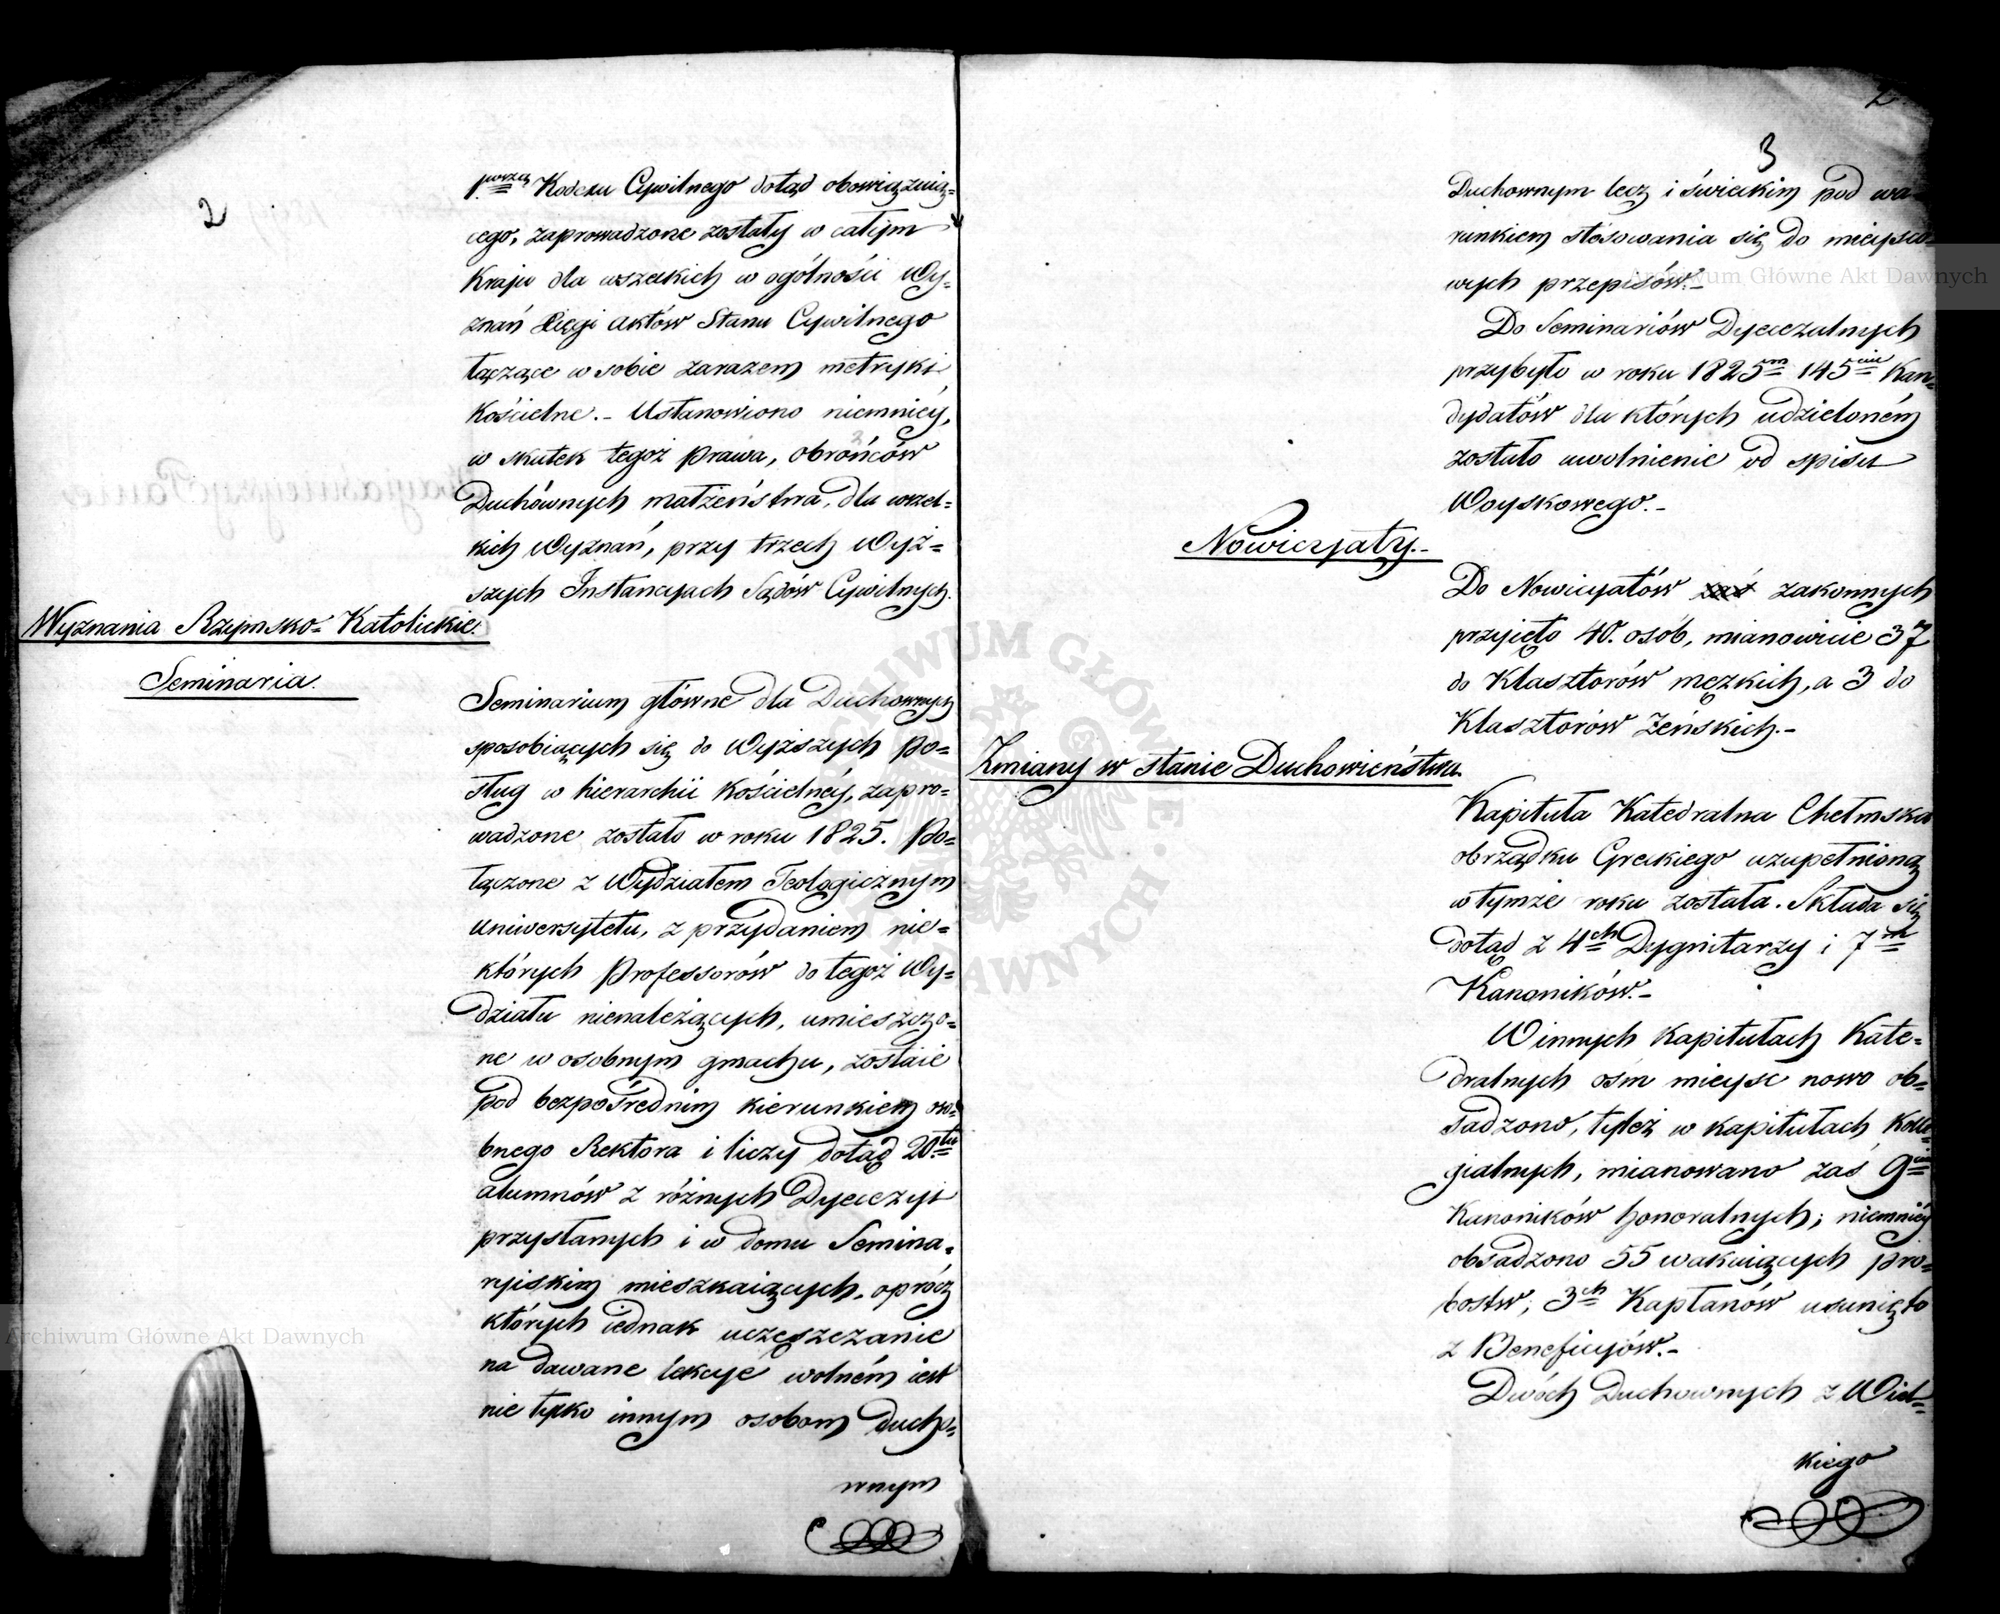 2
1.wszą Kodexu Cywilnego dotąd obowiązuią-
cego, zaprowadzone zostały w całym
Kraju dla wszelkich w ogólności Wy-
znań Xięgi Aktów Stanu Cywilnego
łączące w sobie zarazem metryki
Kościelne.- Ustanowiono niemniéy,
w skutek tegoż Prawa, obrońców
Duchównych małżeństwa, dla wszel-
kich Wyznań, przy trzech Wyż-
szych Instancyach Sądów Cywilnych.
Wyznania Rzymsko-Katolickie.
Seminaria.
Seminarium główne dla Duchownych
sposobiących się do Wyższych Po-
sług w hierarchii Kościelnéy, zapro-
wadzone zostało w roku 1825. Po-
łączone z Wydziałem Teologicznym
Uniwersytetu, z przydaniem nie-
których Professorów do tegoż Wy-
działu nienależących, umieszczo-
ne w osobnym gmachu, zostaie
pod bezpośrednim kierunkiem oso-
bnego Rektora i liczy dotąd 20.tu
alumnów z różnych Dyecezyi
przysłanych i w domu Semina-
ryiskim mieszkaiących, oprócz
których iednak uczęszczanie
na dawane lekcye wolném iest
nie tylko innym osobom Ducho-
wnym
2
3
Duchownym lecz i świeckim pod wa-
runkiem stosowania się do mieysco-
wych przepisów.-
Do Seminariów Dyecezalnych
przybyło w roku 1825m 145ciu Kan-
dydatów dla których udzieloném
zostało uwolnienie od spisu
Woyskowego.-
Nowicyaty.-
Do Nowicyatów zaś zakonnych
przyięto 40. osób, mianowicie 37
do Klasztorów męzkich, a 3 do
Klasztorów Żeńskich.-
Zmiany w stanie Duchowieństwa.
Kapituła Katedralna Chełmska
obrządku Greckiego uzupełnioną
w tymże roku została. Składa się
dotąd z 4ch Dygnitarzy i 7m
Kanoników.-
W innych Kapitułach Kate-
dralnych ośm mieysc nowo ob-
sadzono, tyleż w kapitułach Kolle-
gialnych, mianowano zaś 9ciu
Kanoników honoralnych; niemniéy
obsadzono 55 wakuiących pro-
bostw; 3ch Kapłanów usunięto
z Beneficyów.-
Dwóch Duchownych z Wiel-
kiego
Archiwum Główne Akt Dawnych
Archiwum Główne Akt Dawnych
ARCHIWUM GŁÓWNE AKT DAWNYCH